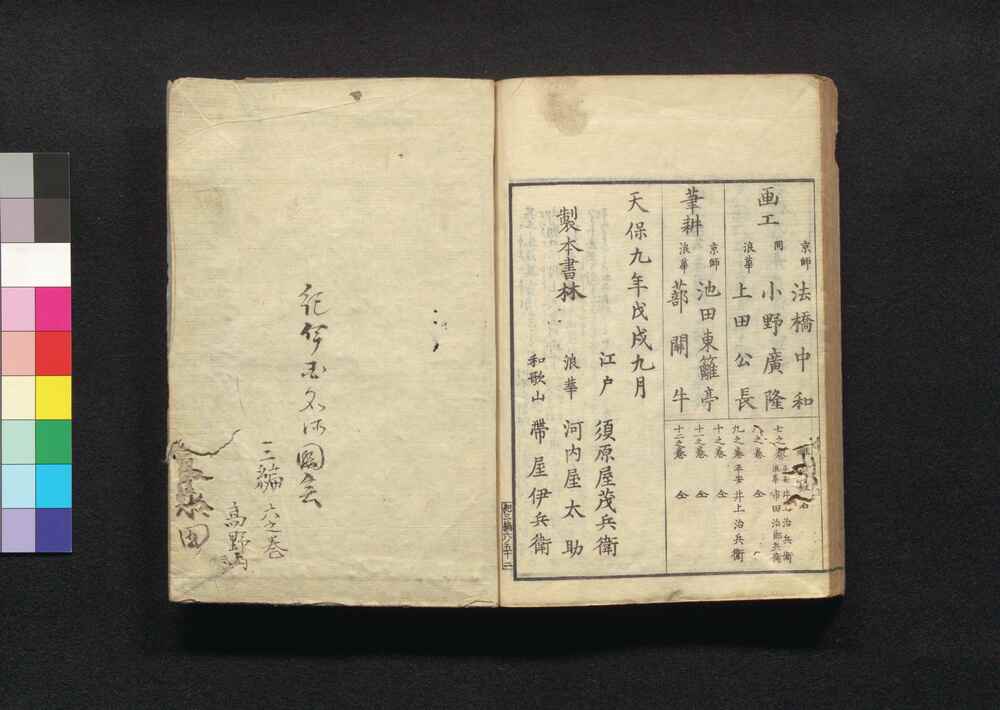 画工
京師 法橋中和
同 小野廣隆
浪華 上田公長
筆耕
京師 池田東籬亭
浪華 蔀關牛
井上治兵衛
七之巻 浪華 市田治郎兵衛
八之巻 仝
九之巻 平安 井上治兵衛
十之巻 仝
十一之巻 仝
十二之巻 仝
天保九年戊戌九月
製本書林
江戸 須原屋茂兵衛
浪華 河内屋太助
和歌山 帶屋伊兵衛
紀三編六ノ五十二
紀伊国名所圖会
三編 六之巻
高野山